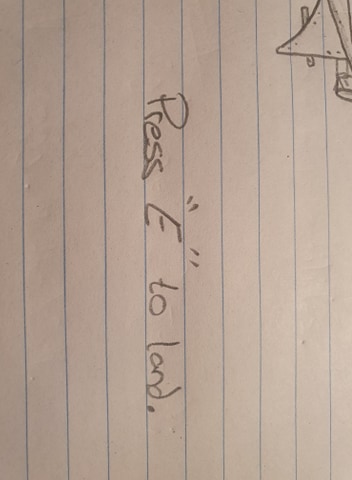 Press "E" to land.